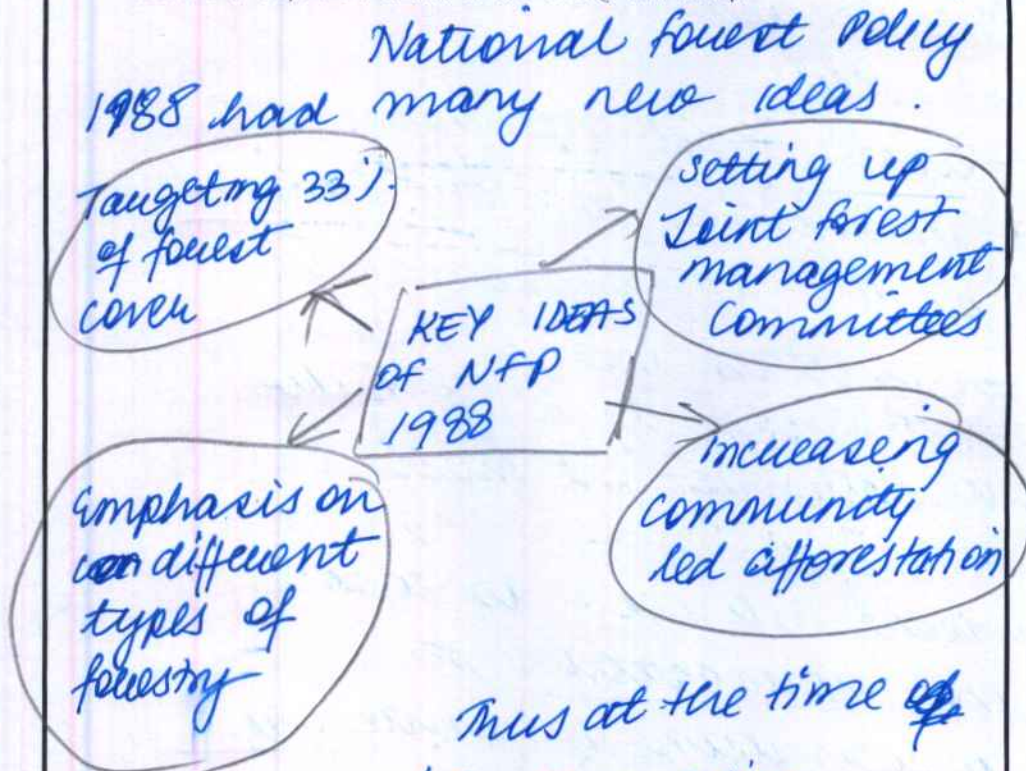 National forest Policy
1988 had many new ideas.
Targeting 33%
of forest
cover
setting up
Joint forest
management
Committees
KEY IDEAS
of NFP
1988
Emphasis on
different
types of
forestry
increasing
community
led afforestation
Thus at the time of